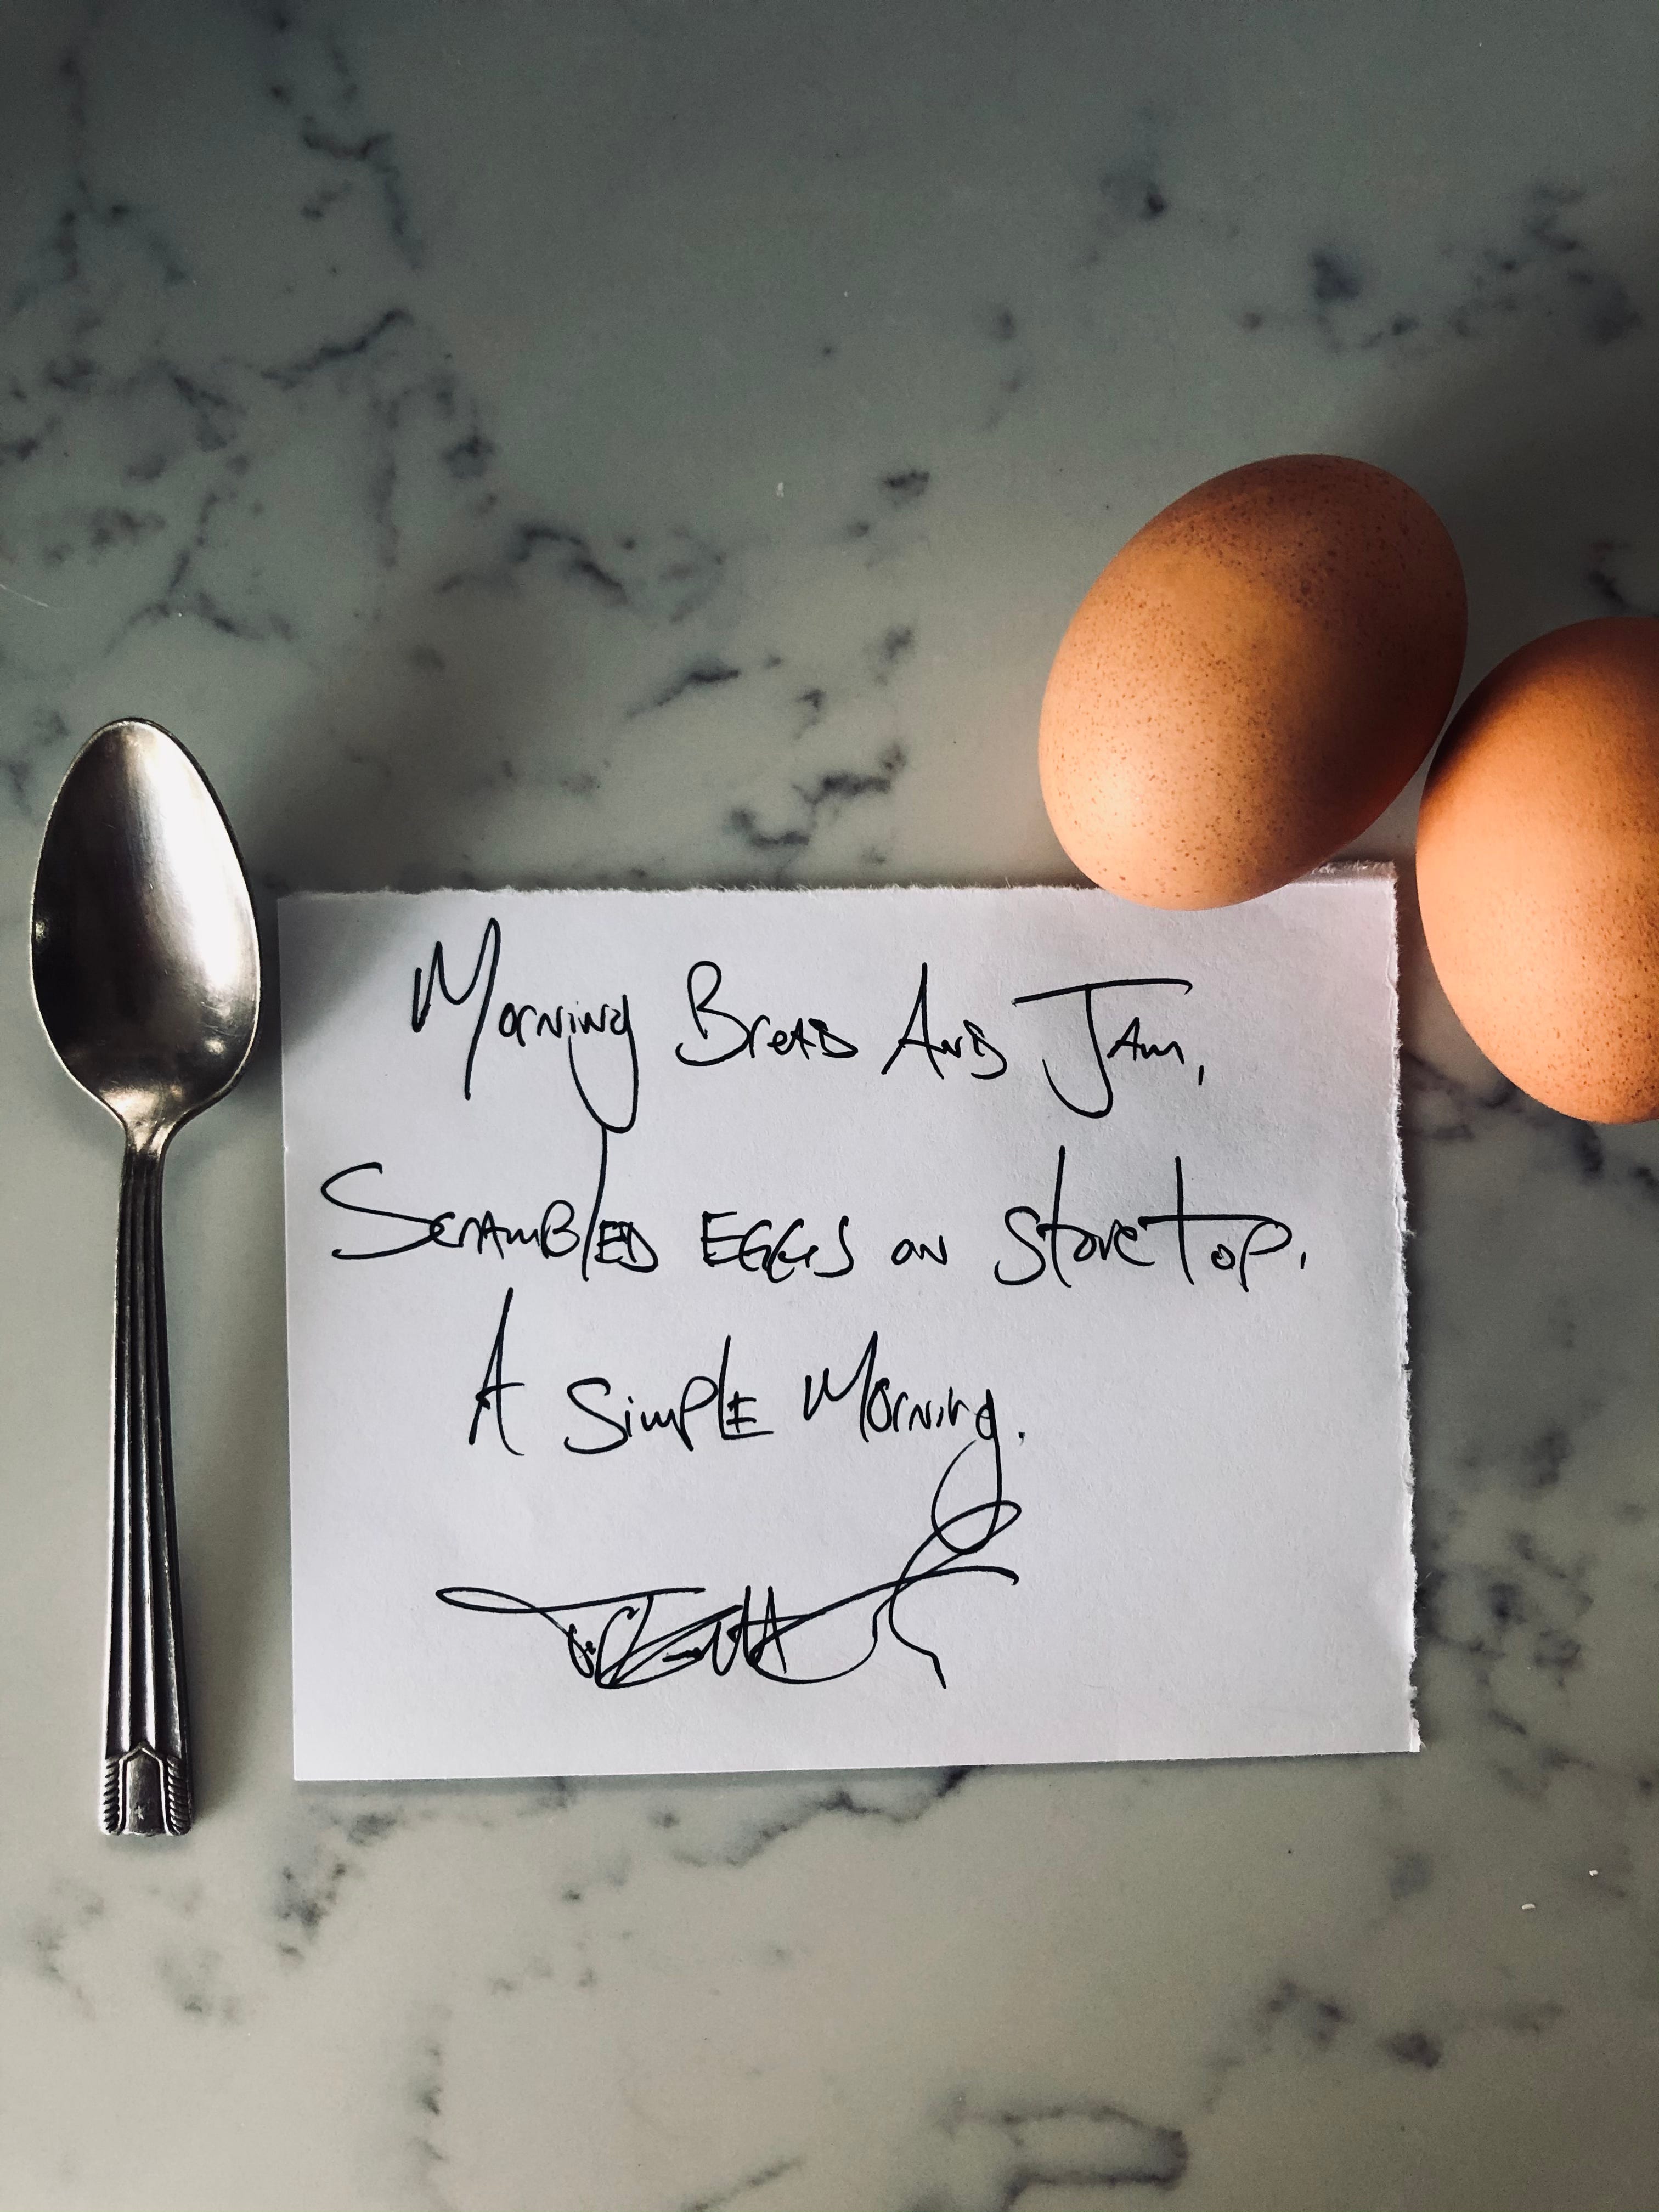 Morning Bread And Jam,
Scrambled EGGS on stovetop.
A Simple Morning.